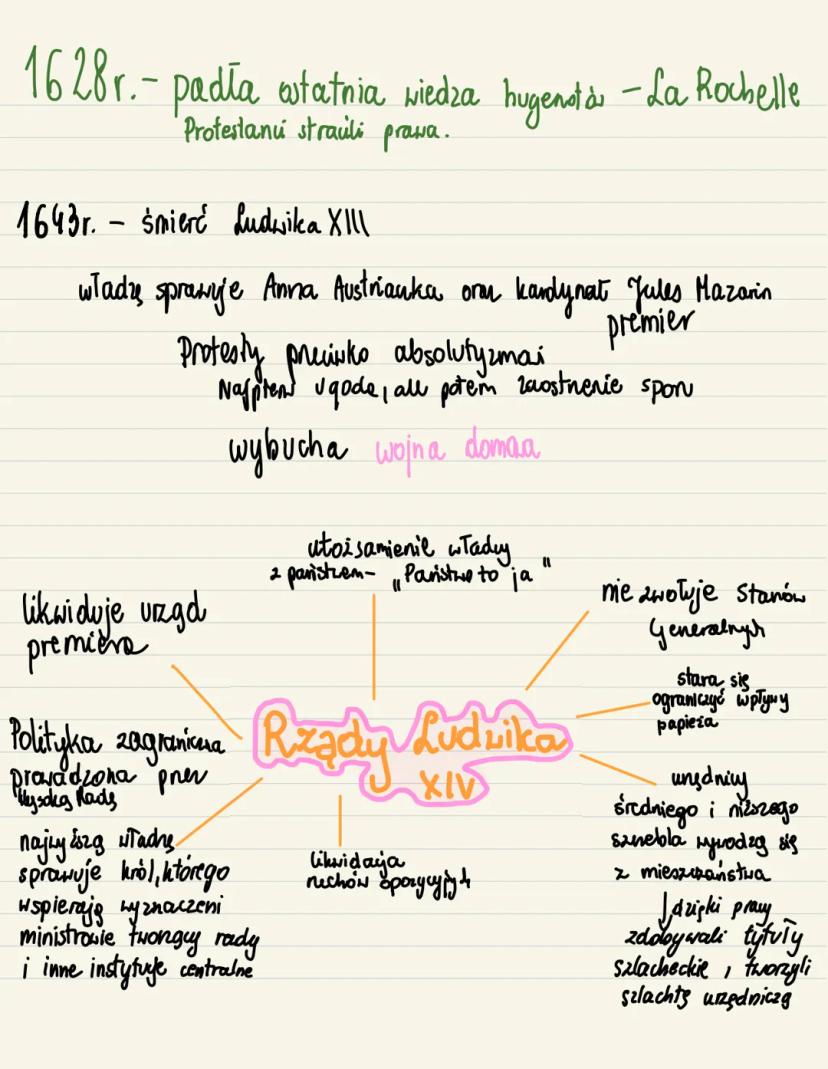 1628r. - padła ostatnia wiedza hugenotów - La Rochelle
Protestanci stracili prawa.
1643r. - śmierć Ludwika XIII
władzę sprawuje Anna Austriaczka oraz kardynał Jules Mazarin
premier
Protesty przeciwko absolutyzmowi
Najpierw ugoda, ale potem zaostrzenie sporu
wybucha wojna domowa
utożsamienie władzy
z państwem - „Państwo to ja"
likwiduje urząd
premiera
nie zwołuje Stanów
Generalnych
stara się
ograniczyć wpływy
papieża
Polityka zagraniczna
prowadzona przez
Wysoką Radę
Rządy Ludwika
XIV
urzędnicy
średniego i niższego
szczebla wywodzą się
z mieszczaństwa
najwyższą władzę
sprawuje król, którego
wspierają wyznaczeni
ministrowie tworzący rady
i inne instytucje centralne
likwidacja
ruchów opozycyjnych
↓ dzięki pracy
zdobywali tytuły
szlacheckie, tworzyli
szlachtę urzędniczą